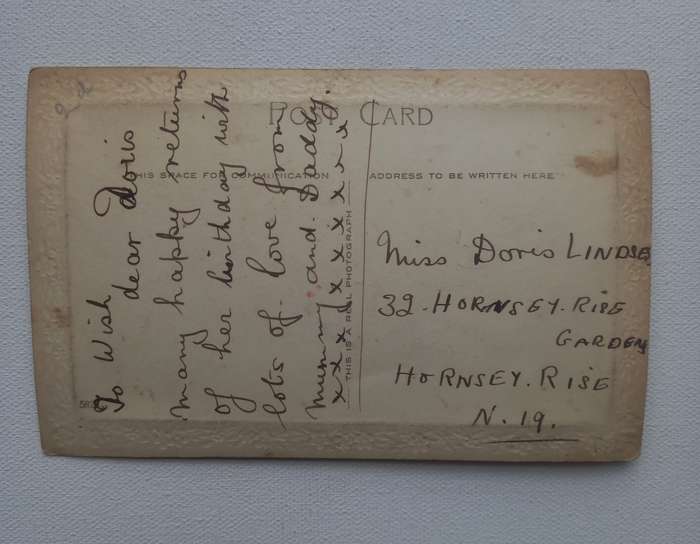 POST CARD
THIS SPACE FOR COMMUNICATION
ADDRESS TO BE WRITTEN HERE
To Wish
dear Doris
many happy returns
of her birthday with
lots of love from
Mummy and Daddy.
x x x x x x x x x x
THIS IS A REAL PHOTOGRAPH
Miss Doris LINDSE
32. HORNSEY. RISE
GARDENS
HORNSEY. RISE
N. 19.